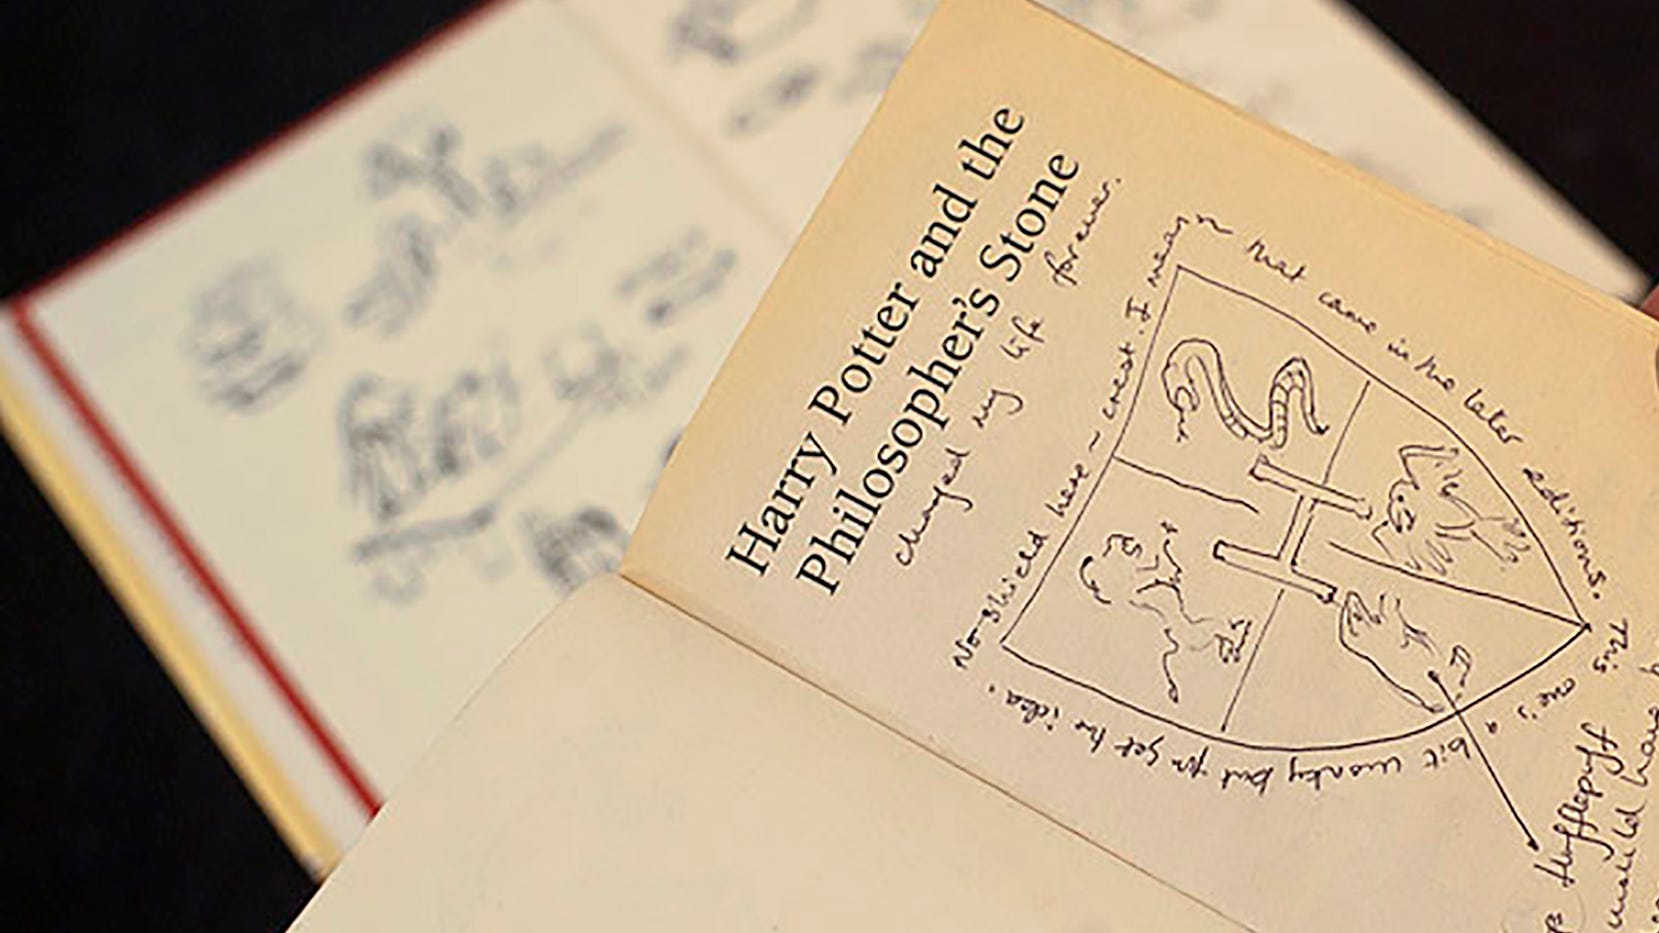 Harry Potter and the
Philosopher's Stone
changed my life forever.
No shield here ~ crest. I mean ~ that came in the later editions. This one's a bit wonky but you get the idea.
H
Hufflepuff
would have